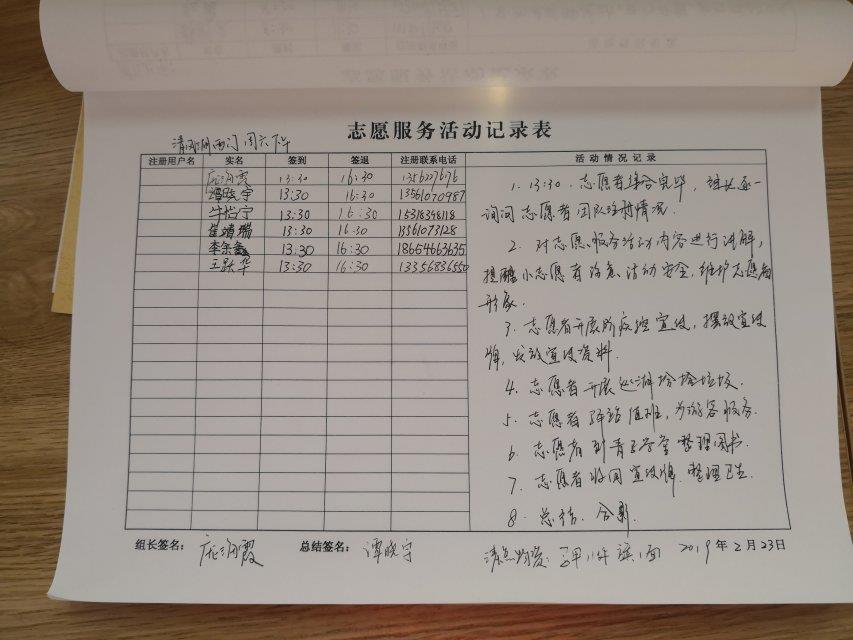 志愿服务活动记录表
西门 周六下午
注册用户名 实名 签到 签退 注册联系电话 活动情况记录
13:30 16:30
谭晓宇 13:30 16:30 13561070987
牛怡宁 13:30 16:30 15318348118
崔靖瑞 13:30 16:30 13361073128
13:30 16:30 18654663635
王跃华 13:30 16:30 13356836550
1. 13:30. 志愿者集合完毕，组长逐一
询问志愿者团队注册情况.
2. 对志愿服务活动内容进行讲解，
提醒小志愿者注意活动安全，维护志愿者
形象.
3. 志愿者开展防疫控宣传，摆放宣传
牌，发放宣传资料.
4. 志愿者开展 捡拾垃圾.
5. 志愿者 站值班，为游客服务.
6. 志愿者到 整理图书.
7. 志愿者收回宣传牌，整理卫生.
8. 总结、合影.
组长签名： 总结签名：谭晓宇 清点物资： 2019年2月23日